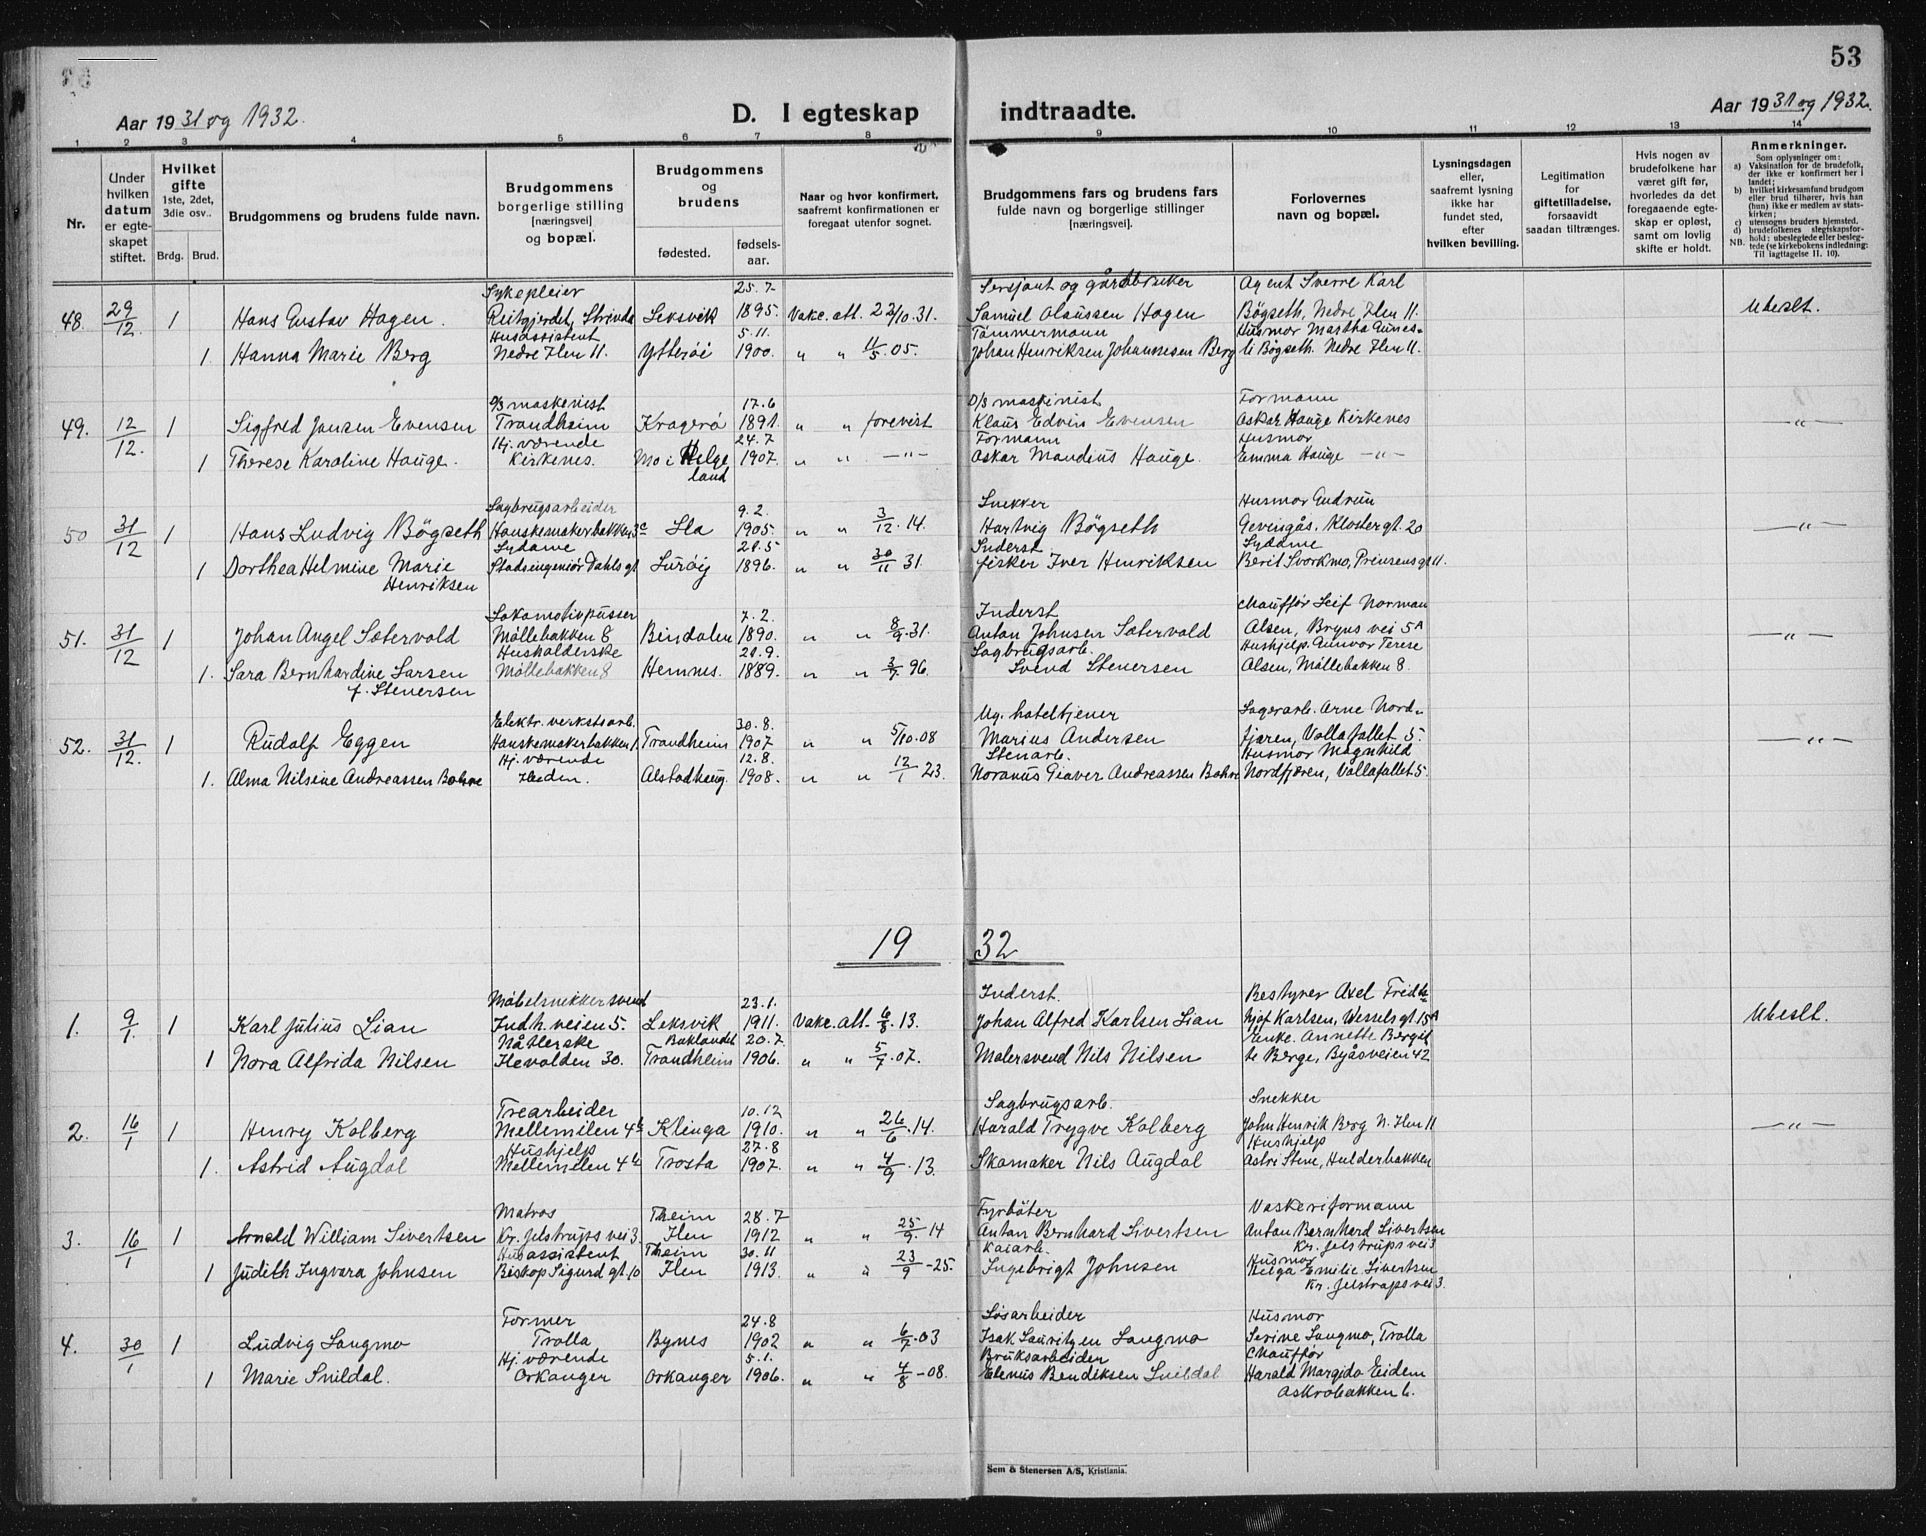 53
Aar 1931 og 1932.
D. I egteskap indtraadte.
Aar 1931 og 1932.
1 2 3 4 5 6 7 8 9 10 11 12 13 14
Nr.
Under hvilken datum er egteskapet stiftet.
Hvilket gifte 1ste, 2det, 3die osv..
Brdg. Brud.
Brudgommens og brudens fulde navn.
Brudgommens borgerlige stilling [næringsvei] og bopæl.
Brudgommens og brudens
fødested.
fødsels-aar.
Naar og hvor konfirmert, saafremt konfirmationen er foregaat utenfor sognet.
Brudgommens fars og brudens fars fulde navn og borgerlige stillinger [næringsvei].
Forlovernes navn og bopæl.
Lysningsdagen eller, saafremt lysning ikke har fundet sted, efter hvilken bevilling.
Legitimation for giftetilladelse, forsaavidt saadan tiltrænges.
Hvis nogen av brudefolkene har været gift før, hvorledes da det foregaaende egteskap er opløst, samt om lovlig skifte er holdt.
Anmerkninger.
Som oplysninger om:
a) Vaksination for de brudefolk, der ikke er konfirmert her i landet;
b) hvilket kirkesamfund brudgom eller brud tilhører, hvis han (hun) ikke er medlem av statskirken;
c) utensogns bruders hjemsted.
d) brudefolkenes slegtskapsforhold: ubeslegtede eller beslegtede (se kirkebokens indledning:
NB. Til iagttagelse II. 10).
Sykepleier 25.7- Sersjant og gårdbruker Agent Sverre Karl
48. 29/12. 1 Hans Gustav Hagen. Reitgjerdet, Strinda Leksvik 1895. Vakc. att. 22/10.31. Samuel Olaussen Hagen Bögseth, Nedre Ilen 11. Ubeslt.
Husassistent 5.11. Tömmermann Husmor Martha Gunes-
1. Hanna Marie Berg Nedre Ilen 11. Ytterøi 1900. " " 11/5.05. Johan Henriksen Johannesen Berg li Bögseth. Nedre Ilen 11.
D/S maskinist 17.6 D/S maskinist Formann
49. 12/12. 1 Sigfred Jansen Evensen Trondheim Kragerö 1891. " " forevist Klaus Edvin Evensen Oskar Hauge Kirkenes —"—
Hj. værende 24.7 Formann Husmor
1 Therese Karoline Hauge. Kirkenes. Mo i Helge 1907. " " —"— Oskar Mandius Hauge. Emma Hauge —"—
land
Sagbrugsarbeider 9.2. Snekker Husmor Gudrun
50 31/12 1 Hans Ludvig Bögseth Hanskemakerbakken 3c Ila 1905. " " 3/12.14. Hartvig Bögseth Gevingås, Klostergt. 20 —"—
Sydame 21.5 Inderst Sydame
1 Dorthea Helmine Marie Stadsingeniör Dahls gt Luröij 1896. " " 30/11 31. fisker Iver Henriksen Berit Svorkmo, Prinsensgt 11.
Henriksen
Lokomotivpusser 7.2. Inderst Chaufför Leif Norman
51. 31/12 1 Johan Angel Sætervold Möllebakken 8 Bindalen 1890. " " 8/9.31. Anton Johnsen Sætervold Olsen, Bryns vei 5A —"—
Husholderske 21.9. Sagbrugsarb. Hushjelp. Gunvor Terese
1. Sara Bernhardine Larsen Möllebakken 8 Hemnes. 1889. " " 3/7 96. Svend Stenersen Olsen, Möllebakken 8
f. Stenersen
Elektr. verkstsarb. 30.8. Ug. hoteltjener Lagerarb. Arne Nord-
52. 31/12. 1 Rudolf Eggen Hanskemakerbakken 1. Trondheim 1907 " " 5/10.08 Marius Andersen fjæren, Vollafallet 5. —"—
Hj. værende 12.8. Stenarb. Husmor Magnhild
1. Alma Nilsine Andreassen Bohre Heden. Alstadhaug. 1908. " " 12/1 23. Noranus Giæver Andreassen Bohre Nordfjæren, Vollafallet 5.
19 32
Möbelsnikkersvend 23.1. Inderst. Bestyrer Axel Fridte-
1. 9/1. 1 Karl Julius Lian Indh. veien 5. Leksvik 1911. Vakc. att. 6/8.13. Johan Alfred Karlsen Lian njof Karlsen, Wessels gt. 15A Ubeslt.
Nåtlerske Baklandet 20.7. Enke. Annette Bergit
1 Nora Alfrida Nilsen Ilevolden 30. Trondheim 1906. " " 5/7.07. Malersvend Nils Nilsen te Berge, Byåsveien 42
Trearbeider 10.12 Sagbrugsarb. Snekker
2. 16/1 1 Henry Kolberg Mellemilen 4b Klinga 1910. " " 26/6.14. Harald Trygve Kolberg John Henrik Berg N. Ilen 11 —"—
Hushjelp 27.8 Hushjelp
1. Astrid Augdal Mellemilen 4b Frosta 1907. " " 4/9.13. Skomaker Nils Augdal Astri Stene, Hulderbakken
Matros Theim 28.7 Fyrböter Vaskeriformann
3. 16/1 1 Arnold William Sivertsen Kr. Jelstrups vei 3. Ilen 1912 " " 25/9.14 Anton Bernhard Sivertsen Anton Bernhard Sivertsen
Kr. Jelstrups vei 3
Husassistent Theim 30.11 Kaiarb. Husmor
1 Judith Ingvara Johnsen Biskop Sigurd gt. 10 Ilen 1913. " " 23/9-25. Ingebrigt Johnsen Helga Emilie Sivertsen
Kr. Jelstrups vei 3.
Former 24.8 Løsarbeider Husmor
4. 30/1 1 Ludvig Langmo Trolla Bynes 1902 " " 6/7.03 Isak Lauritzen Langmo Serine Langmo, Trolla
Hj. værende 5.1. Bruksarbeider Chaufför
1 Marie Snildal. Orkanger Orkanger 1906. " " 4/8-08. Elenus Bendiksen Snildal Harald Margido Eidem
Askrobakken 6.
Sem & Stenersen A/S, Kristiania.